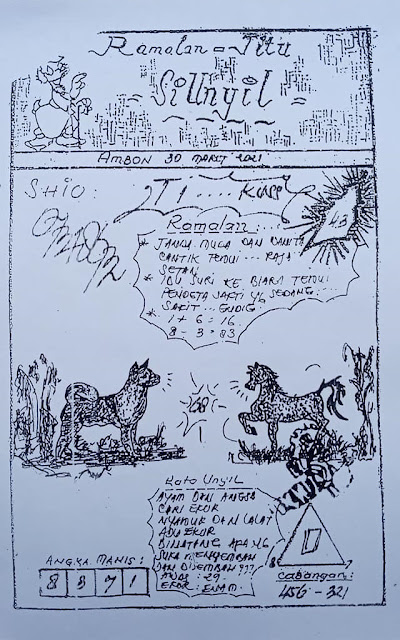 Ramalan = Jitu
Si Unyil
AMBON 30 MARET 2021
SHIO:
Ramalan:
* JANDA MUDA DAN
CANTIK TEMUI ... RAJA
SETAN
* IBU SURI KE BIARA TEMUI
PENDETA SAKTI YG SEDANG
SAKIT ... GUDIG
* 1 + 6 = 16
8 - 3 = 83
Kata Unyil
AYAM DAN ANGSA
CARI EKOR
NYAMUK DAN LALAT
ADU EKOR
BINATANG APA YG
SUKA MENYEMBAH
DAN DISEMBAH ???
: 29
EKOR : ENAM
ANGKA MANIS:
8 8 7 1
Cabangan:
456 - 321